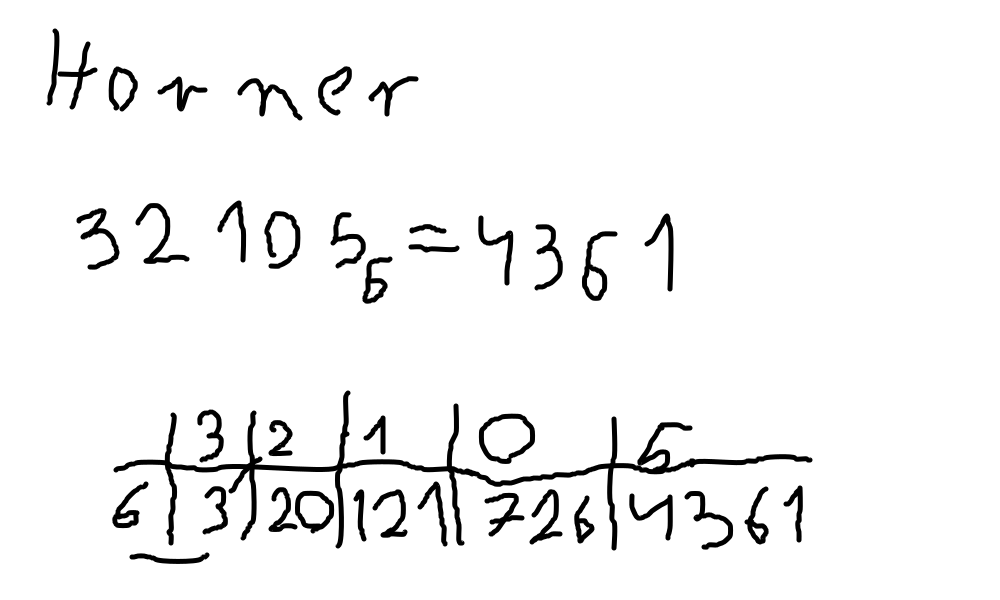 Horner
32105₆=4361
3 2 1 0 5
6 3 20 121 726 4361